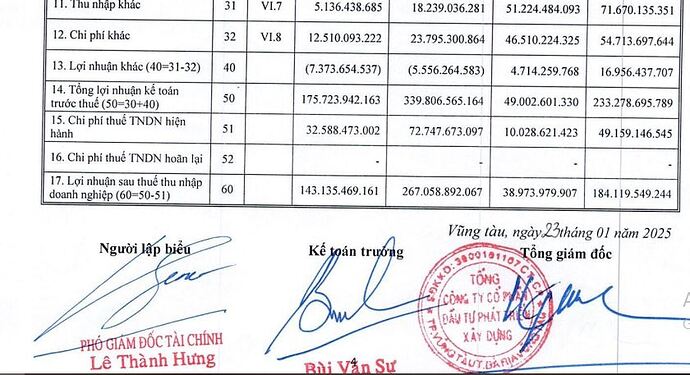 11. Thu nhập khác 31 VI.7 5.136.438.685 18.239.036.281 51.224.484.093 71.670.135.351
12. Chi phí khác 32 VI.8 12.510.093.222 23.795.300.864 46.510.224.325 54.713.697.644
13. Lợi nhuận khác (40=31-32) 40 (7.373.654.537) (5.556.264.583) 4.714.259.768 16.956.437.707
14. Tổng lợi nhuận kế toán
trước thuế (50=30+40) 50 175.723.942.163 339.806.565.164 49.002.601.330 233.278.695.789
15. Chi phí thuế TNDN hiện
hành 51 32.588.473.002 72.747.673.097 10.028.621.423 49.159.146.545
16. Chi phí thuế TNDN hoãn lại 52 - - - -
17. Lợi nhuận sau thuế thu nhập
doanh nghiệp (60=50-51) 60 143.135.469.161 267.058.892.067 38.973.979.907 184.119.549.244
Vũng tàu, ngày 23 tháng 01 năm 2025
Người lập biểu Kế toán trưởng Tổng giám đốc
TỔNG
CÔNG TY CỔ PHẦN
ĐẦU TƯ PHÁT TRIỂN
XÂY DỰNG
PHÓ GIÁM ĐỐC TÀI CHÍNH
Lê Thành Hưng
Bùi Văn Sự